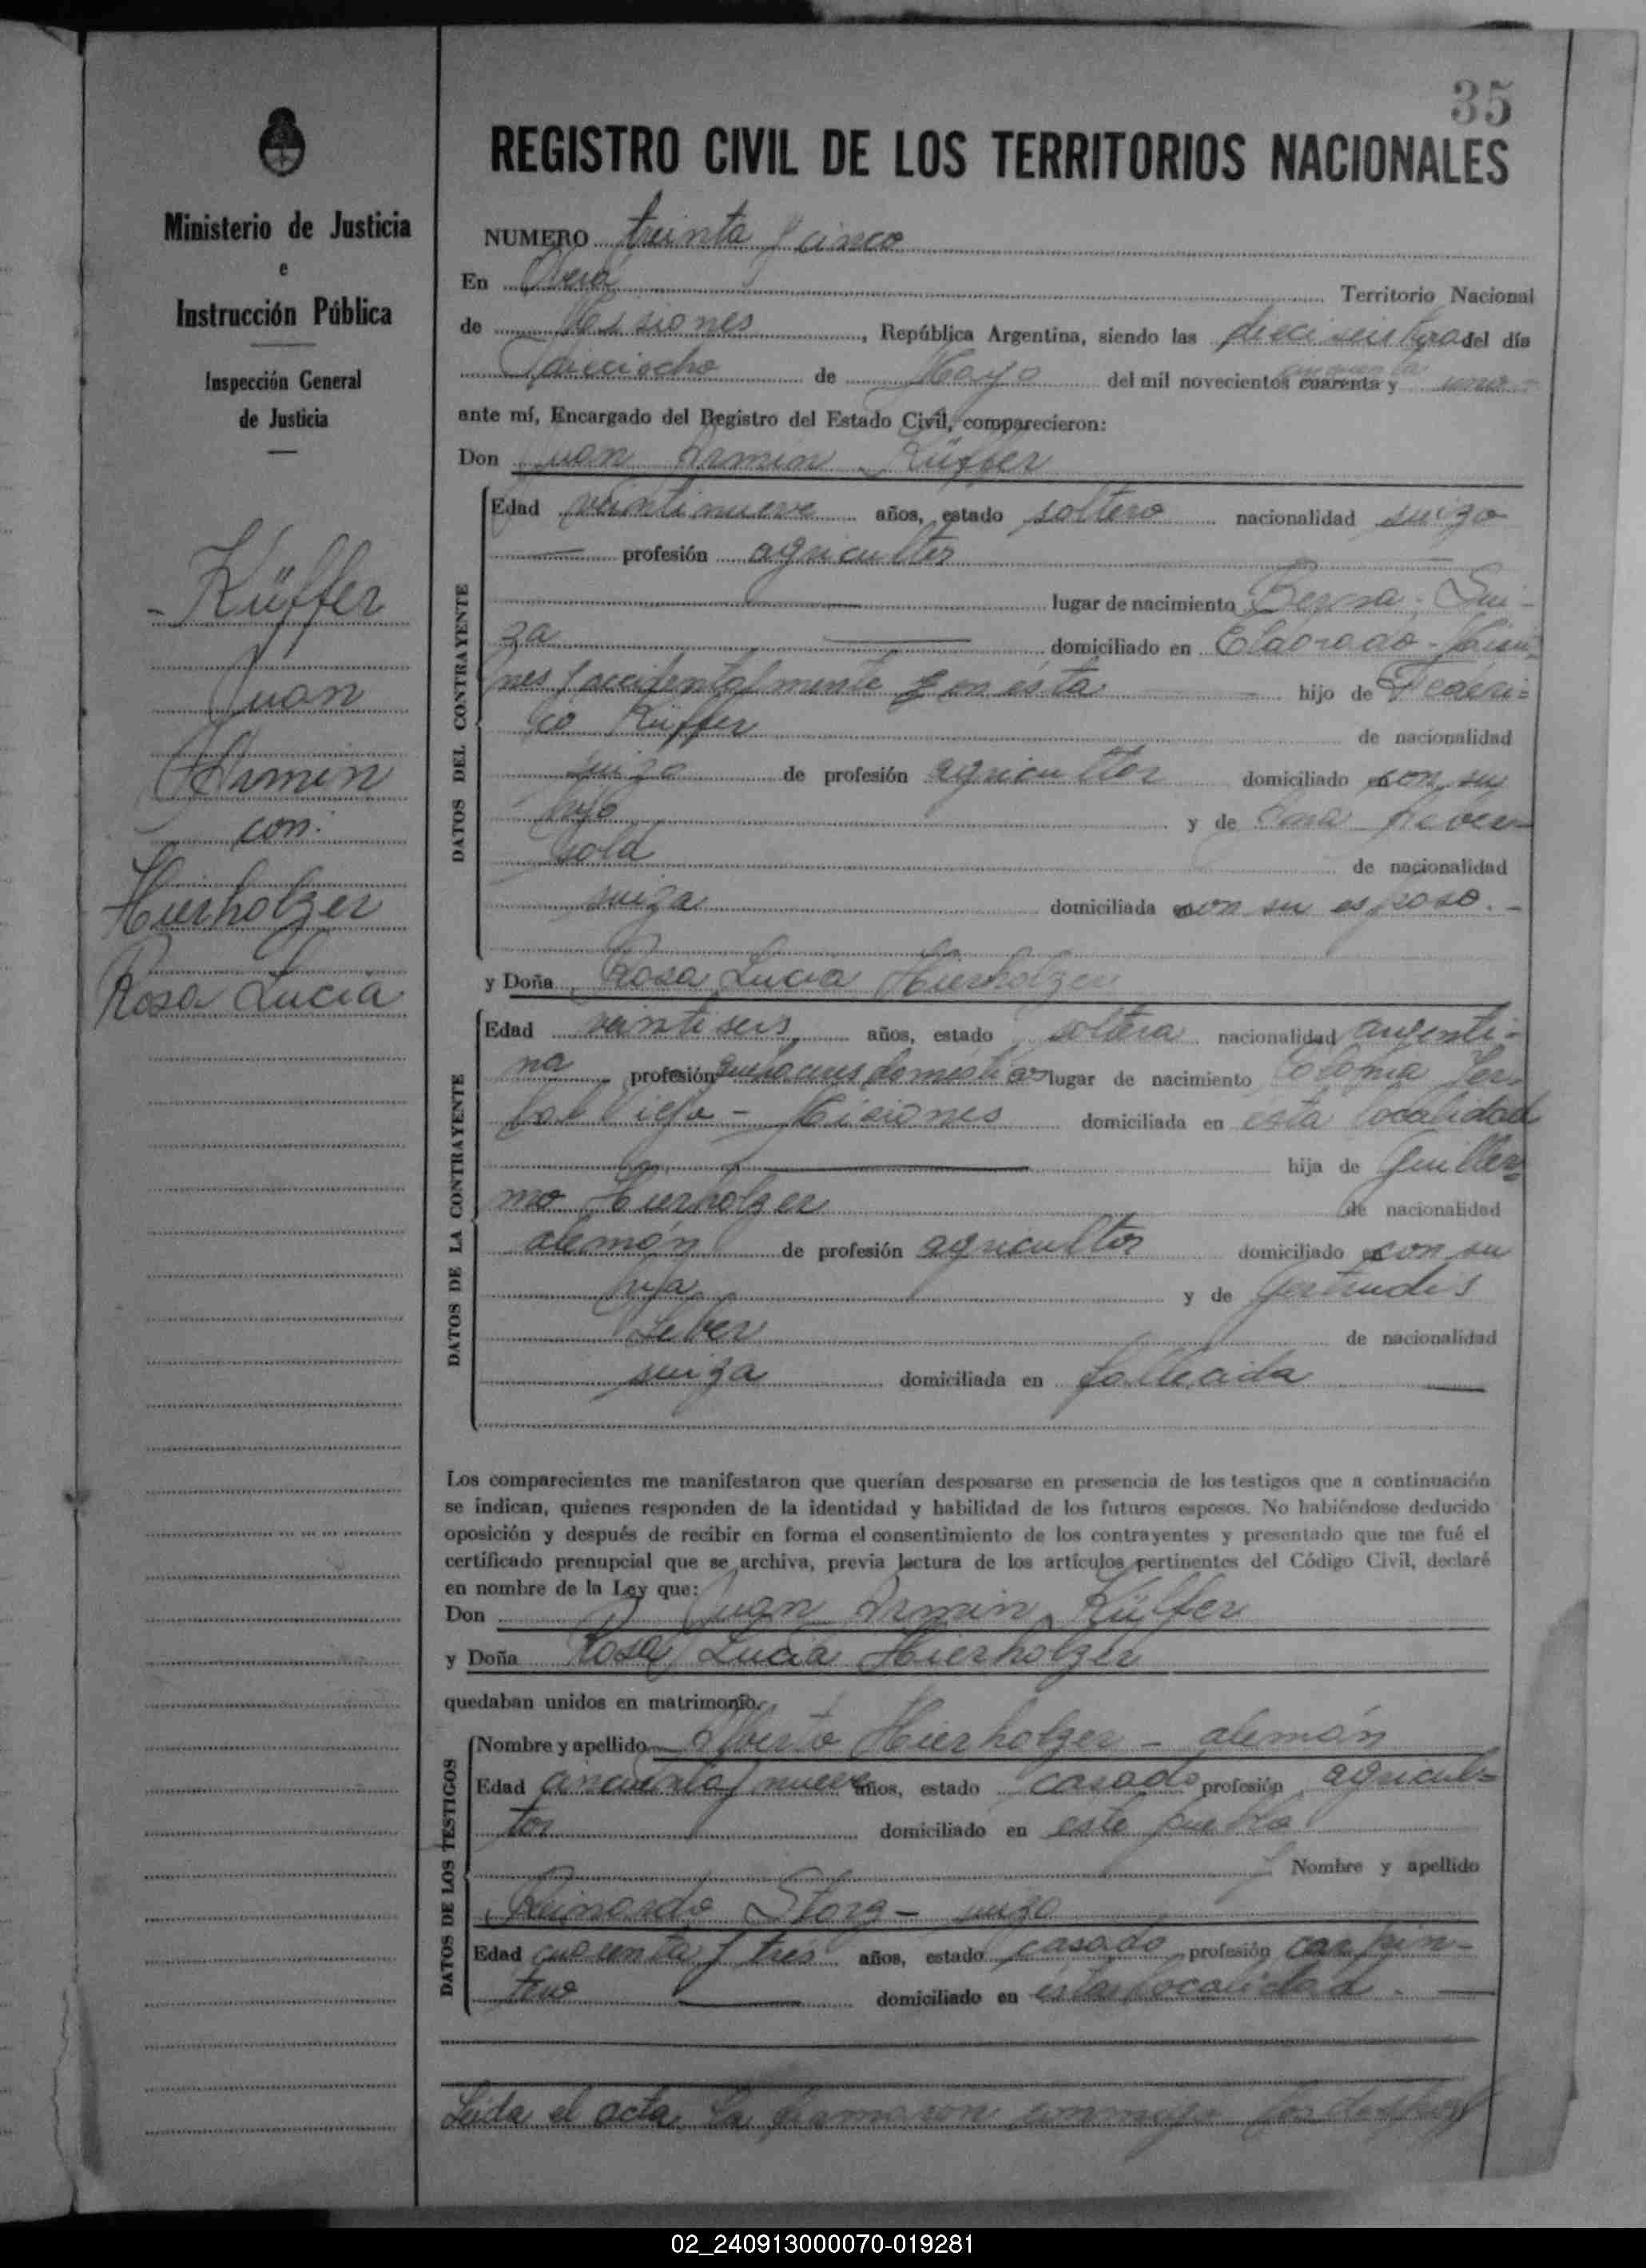 35
REGISTRO CIVIL DE LOS TERRITORIOS NACIONALES
Ministerio de Justicia
e
Instrucción Pública
Inspección General
de Justicia
Küffer
Juan
Armin
con:
Hierholzer
Rosa Lucia
NUMERO treinta y cinco
En Oberá Territorio Nacional
de Misiones, República Argentina, siendo las del día
dieciocho de Mayo del mil novecientos cuarenta y uno
ante mí, Encargado del Registro del Estado Civil, comparecieron:
Don Juan Armin Küffer
DATOS DEL CONTRAYENTE
Edad veintinueve años, estado soltero nacionalidad suizo
profesión agricultor
lugar de nacimiento Berna - Sui-
za domiciliado en Eldorado - Misio-
nes y accidentalmente en ésta hijo de Federi-
co Küffer de nacionalidad
suizo de profesión agricultor domiciliado en con su
hijo y de
de nacionalidad
suiza domiciliada en con su esposo.-
y Doña Rosa Lucia Hierholzer
DATOS DE LA CONTRAYENTE
Edad veintiseis años, estado soltera nacionalidad argenti-
na profesión quehaceres domésticos lugar de nacimiento Colonia
Viejo - Misiones domiciliada en esta localidad
hija de Guiller-
mo Hierholzer de nacionalidad
alemán de profesión agricultor domiciliado en con su
hija y de Gertrudis
de nacionalidad
suiza domiciliada en fallecida
Los comparecientes me manifestaron que querían desposarse en presencia de los testigos que a continuación
se indican, quienes responden de la identidad y habilidad de los futuros esposos. No habiéndose deducido
oposición y después de recibir en forma el consentimiento de los contrayentes y presentado que me fué el
certificado prenupcial que se archiva, previa lectura de los artículos pertinentes del Código Civil, declaré
en nombre de la Ley que:
Don Juan Armin Küffer
y Doña Rosa Lucia Hierholzer
quedaban unidos en matrimonio.
DATOS DE LOS TESTIGOS
Nombre y apellido Alberto Hierholzer - alemán
Edad cincuenta y nueve años, estado casado profesión agricul-
tor domiciliado en este pueblo
Nombre y apellido
Reinardo - suizo
Edad cuarenta y tres años, estado casado profesión carpin-
tero domiciliado en esta localidad. -
Leida el acta, la firmaron conmigo los
02_240913000070-019281